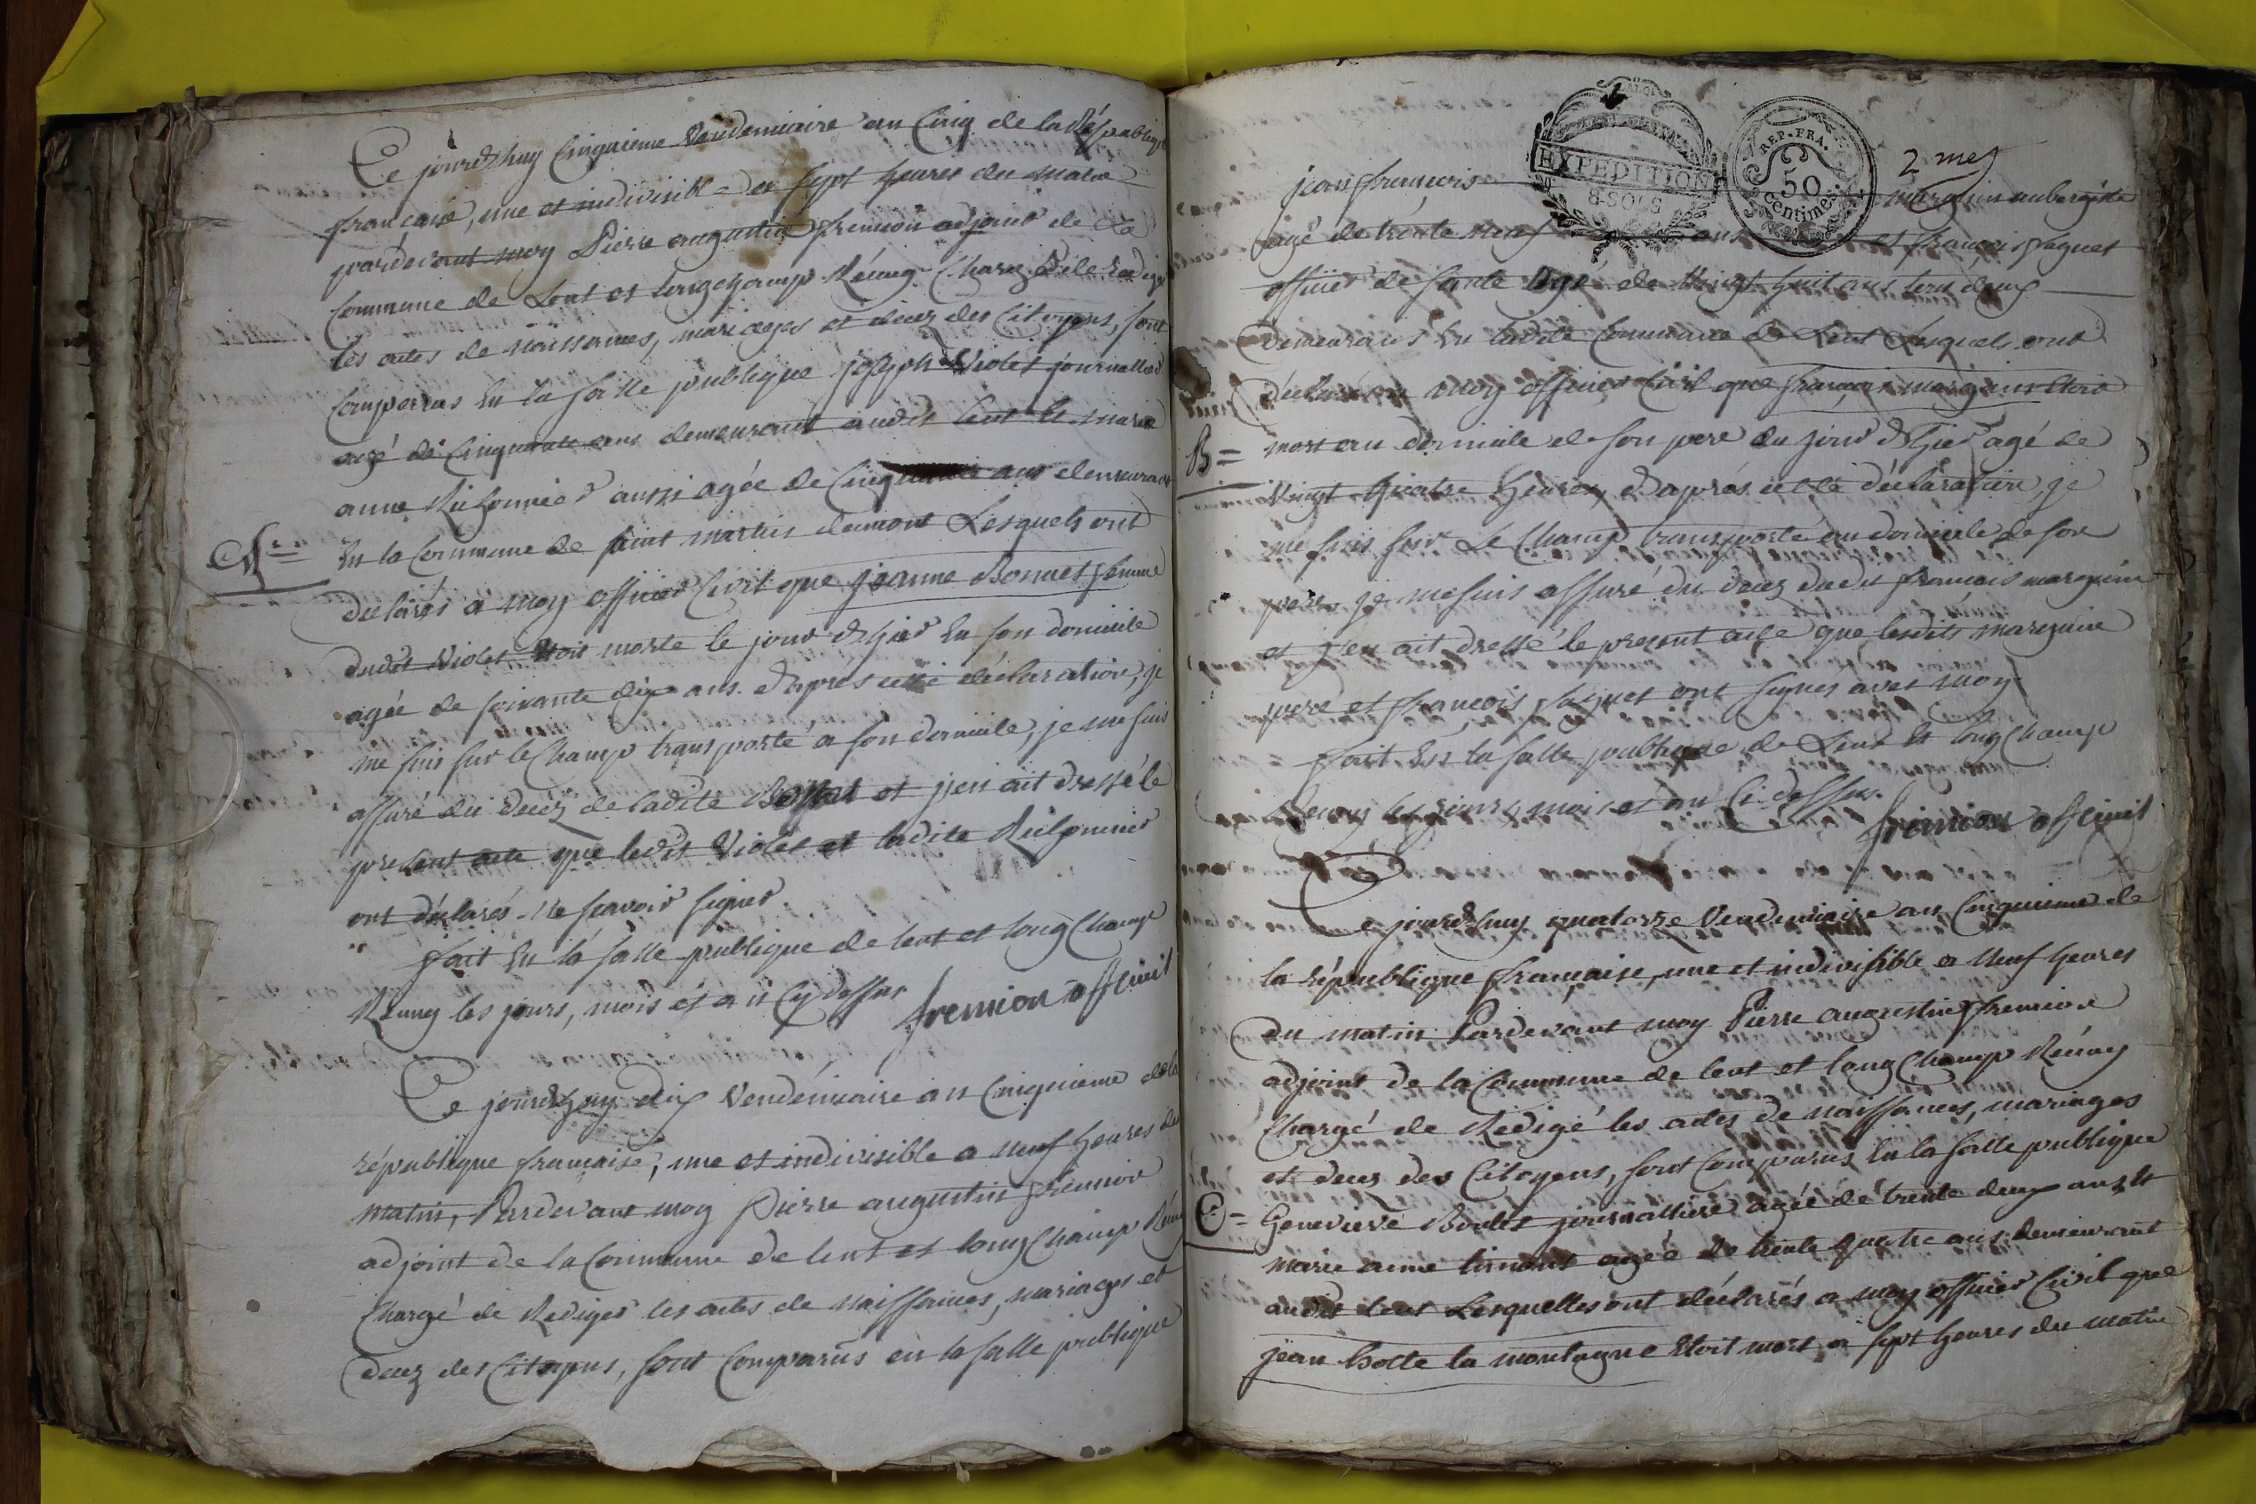 Ce jourdhuy Cinquieme Vendemiaire an Cinq de la Républiq
française, une et indivisible a sept heures du matin
pardevant moy Pierre augustin fremion adjoint de la
Commune de Lent et Longchamp Réuny Chargé de
les actes de naissances, mariages et decez des Citoyens, sont
Comparus En la salle publique joseph Violet journallier
agé de Cinquante ans demeurant audit Lent et marie
anne aussi agée de Cinquante ans demeurant
En la Commune de saint martin demont Lesquels ont
declarés a moy officier Civil que jeanne Bonnet femme
dudit Violet Etoit morte le jour d'hier En son domicile
agée de soixante dix ans. d'apres cette déclaration, je
me suis sur le Champ transporté a son domicile, je me suis
assuré du decez de ladite et j'en ait dressé le
present acte que ledit Violet et ladite
ont déclarés ne scavoir signer
fait En la salle publique de lent et long Champ
Reuny les jours, mois et an Cy dessus fremion off civil
Ce jourdhuy dix Vendémiaire an Cinquieme de la
république francaise, une et indivisible a neuf heures du
matin, Pardevant moy Pierre augustin fremion
adjoint de la Commune de lent et long Champ Réuny
Chargé de Rediger les actes de naissances, mariages et
decez des Citoyens, sont Comparus en la salle publique
EXPEDITION
REP. FRA.
50
Centimes
2 mes
jean francois marguin aubergiste
agé de trente neuf ans et francois paquet
officier de sante agé de Vingt huit ans tous deux
demeurans En ladite Commune de Lent Lesquels ont
déclarés a moy officier Civil que françois marguin Etoit
B= mort au domicile de son pere du jour d'hier agé de
Vingt quatre heures, d'aprés cette déclaration, je
me suis sur Le Champ transporté au domicile de son
pere, je me suis assuré du decez dudit francois marguin
et j'en ait dressé le present acte que lesdits marguin
pere et francois paquet ont signés avec moy
fait En la salle publique de Lent Et long Champ
Reuny les jours, mois et an Ci dessus. fremion off civil
Ce jourdhuy quatorze Vendemiaire an Cinquieme de
la république française, une et indivisible a neuf heures
du matin Pardevant moy Pierre augustin fremion
adjoint de la Commune de lent et long Champ Réuny
Chargé de Redigé les actes de naissances, mariages
et decez des Citoyens, sont Comparus En la salle publique
C= Genevieve Boulet journalliere agée de trente deux ans et
marie anne agée de trente quatre ans demeurant
audit Lent Lesquelles ont déclarés a moy officier Civil que
jean la montagne Etoit mort a sept heures du matin